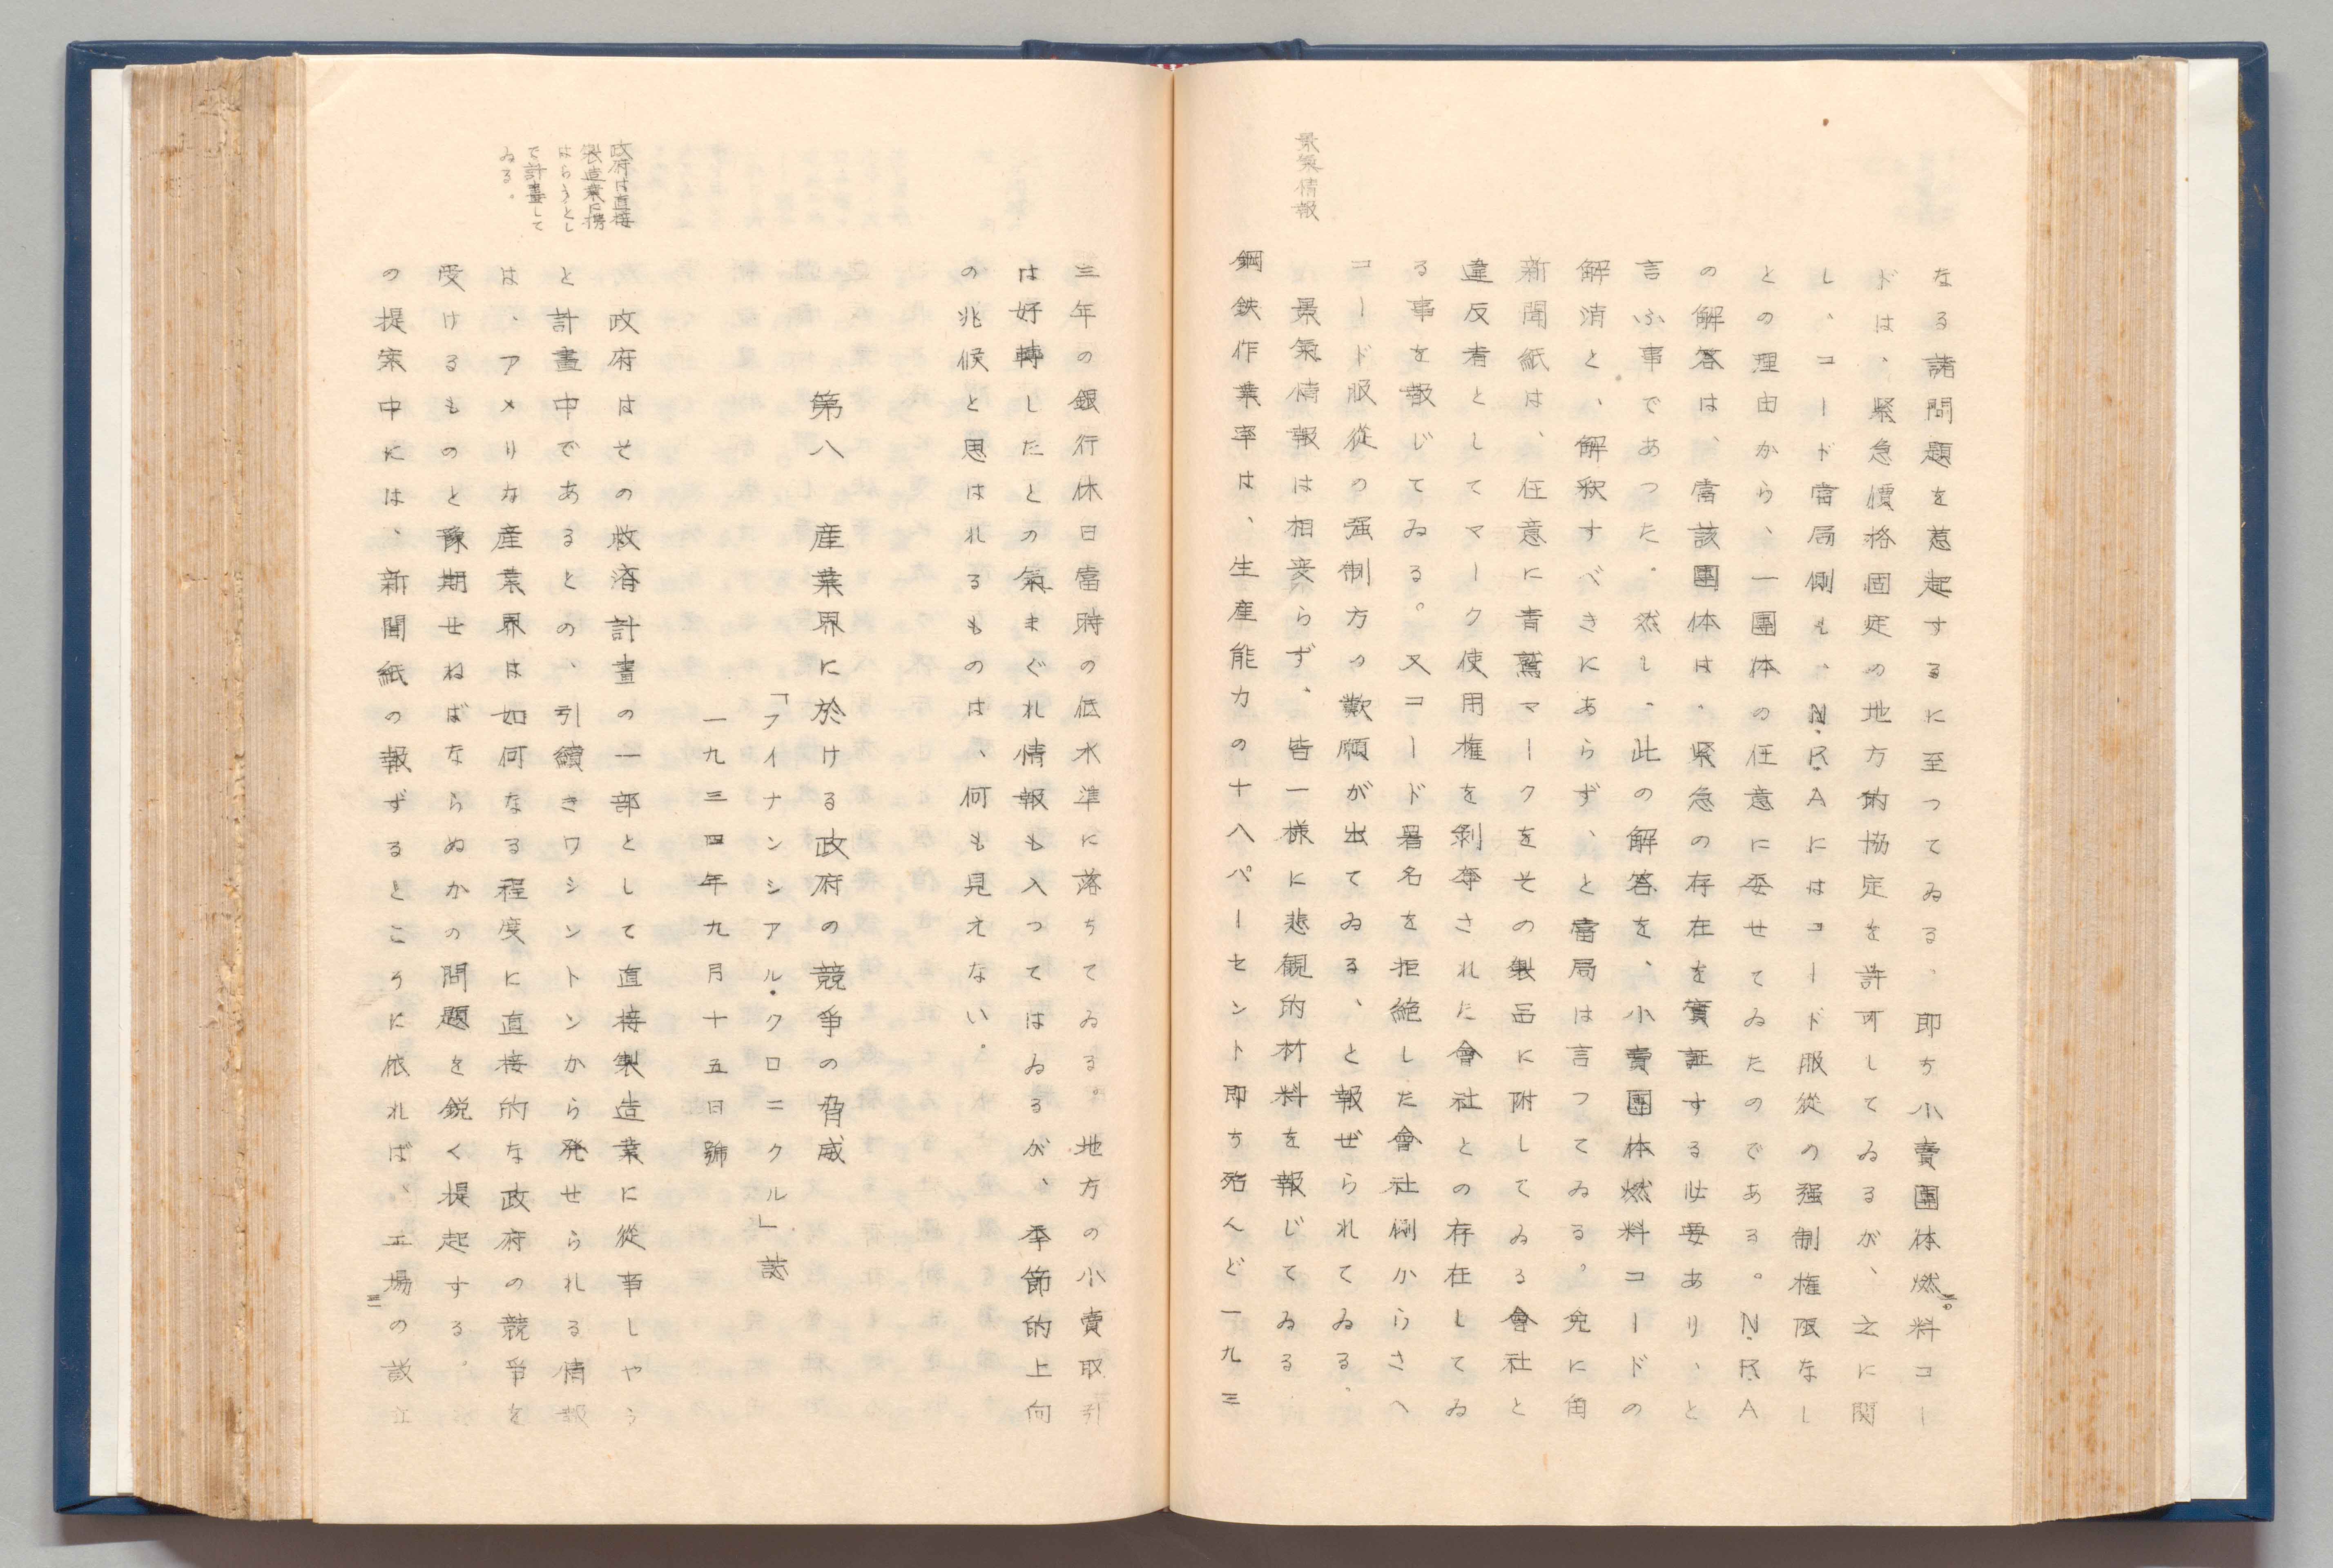 なる諸問題を惹起するに至つてゐる、即ち小賣團体燃料コー
ドは、緊急價格固定の地方的協定を許可してゐるが、之に関
し、コード當局側も、N.R.Aにはコード服從の强制権限なし
との理由から、一團体の任意に委せてゐたのである。N.R.A
の解答は、當該團体は、緊急の存在を實証する必要あり、と
言ふ事であつた。然し、此の解答を、小賣團体燃料コードの
解消と、解釈すべきにあらず、と當局は言つてゐる。兎に角
新聞紙は、任意に青鷲マークをその製品に附してゐる會社と
違反者としてマーク使用権を剝奪された會社との存在してゐ
る事を報じてゐる。又コード署名を拒絶した會社側からさへ
コード服從の强制方の歎願が出てゐる、と報ぜられてゐる、
景氣情報
景氣情報は相変らず、皆一様に悲観的材料を報じてゐる
鋼鉄作業率は、生産能力の十八パーセント即ち殆んど一九三
三年の銀行休日當時の低水準に落ちてゐる。地方の小賣取引
は好轉したとの氣まぐれ情報も入つてはゐるが、季節的上向
の兆候と思はれるものは、何も見えない。
第八 産業界に於ける政府の競爭の脅威
「フイナンシアル・クロニクル」誌
一九三四年九月十五日號
政府は直接
製造業に携
はらうとし
て計畫して
ゐる。
政府はその救済計畫の一部として直接製造業に從事しやう
と計畫中であるとの、引續きワシントンから発せられる情報
は、アメリカ産業界は如何なる程度に直接的な政府の競爭を
受けるものと豫期せねばならぬかの問題を鋭く提起する。
の提案中には、新聞紙の報ずるところに依れば、工場の設立